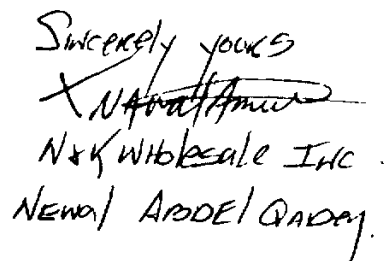 Sincerely yours
X
N&K Wholesale Inc.
Newal ABDEl QADer.